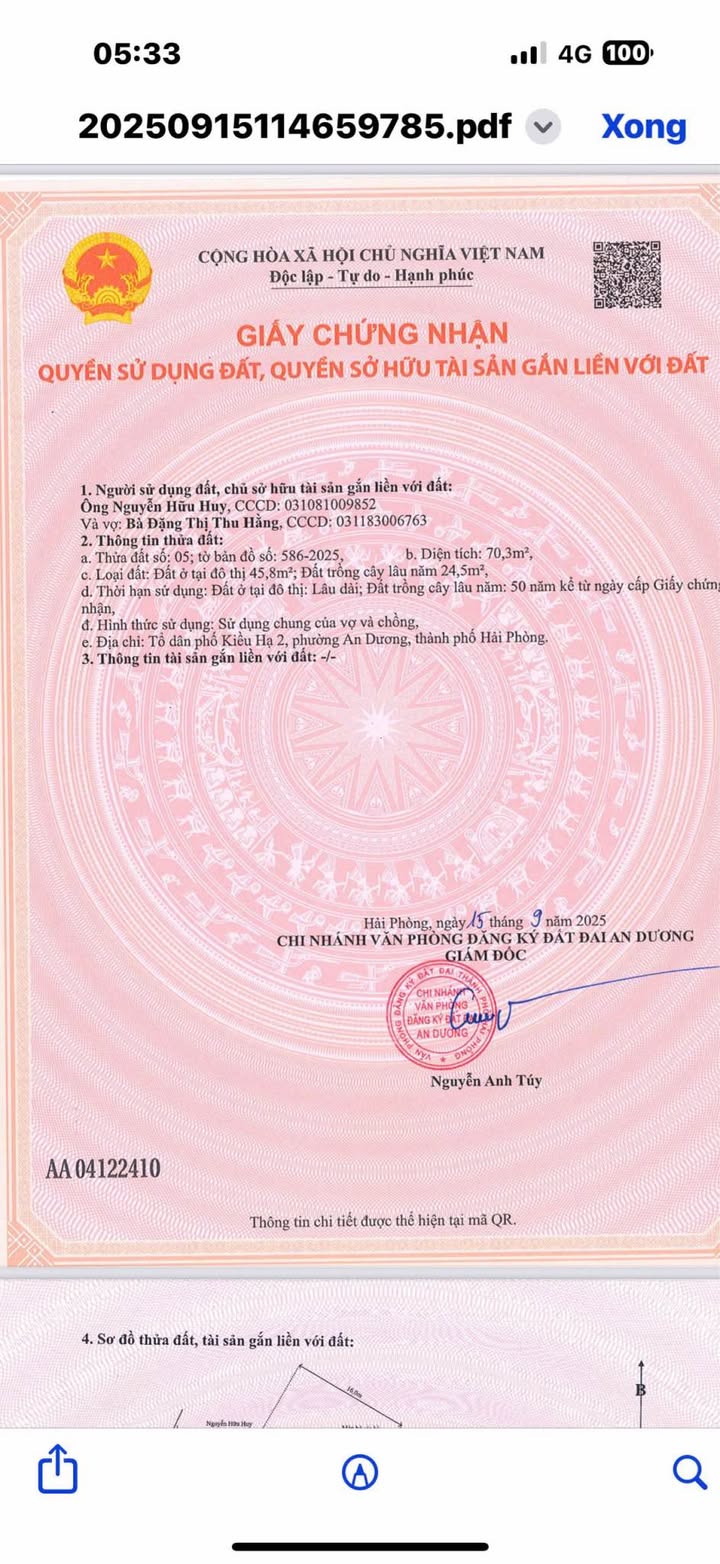 05:33
4G 100
20250915114659785.pdf
Xong
CỘNG HÒA XÃ HỘI CHỦ NGHĨA VIỆT NAM
Độc lập - Tự do - Hạnh phúc
GIẤY CHỨNG NHẬN
QUYỀN SỬ DỤNG ĐẤT, QUYỀN SỞ HỮU TÀI SẢN GẮN LIỀN VỚI ĐẤT
1. Người sử dụng đất, chủ sở hữu tài sản gắn liền với đất:
Ông Nguyễn Hữu Huy, CCCD: 031081009852
Và vợ: Bà Đặng Thị Thu Hằng, CCCD: 031183006763
2. Thông tin thửa đất:
a. Thửa đất số: 05; tờ bản đồ số: 586-2025, b. Diện tích: 70,3m²,
c. Loại đất: Đất ở tại đô thị 45,8m²; Đất trồng cây lâu năm 24,5m²,
d. Thời hạn sử dụng: Đất ở tại đô thị: Lâu dài; Đất trồng cây lâu năm: 50 năm kể từ ngày cấp Giấy chứng
nhận,
đ. Hình thức sử dụng: Sử dụng chung của vợ và chồng,
e. Địa chỉ: Tổ dân phố Kiều Hạ 2, phường An Dương, thành phố Hải Phòng.
3. Thông tin tài sản gắn liền với đất: -/-
Hải Phòng, ngày 15 tháng 9 năm 2025
CHI NHÁNH VĂN PHÒNG ĐĂNG KÝ ĐẤT ĐAI AN DƯƠNG
GIÁM ĐỐC
VĂN PHÒNG ĐĂNG KÝ ĐẤT ĐAI THÀNH PHỐ HẢI PHÒNG
CHI NHÁNH
VĂN PHÒNG
ĐĂNG KÝ ĐẤT
AN DƯƠNG
Nguyễn Anh Túy
AA 04122410
Thông tin chi tiết được thể hiện tại mã QR.
4. Sơ đồ thửa đất, tài sản gắn liền với đất:
B
Nguyễn Hữu Huy